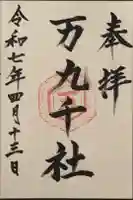 奉拝
万九千社
令和七年四月十三日